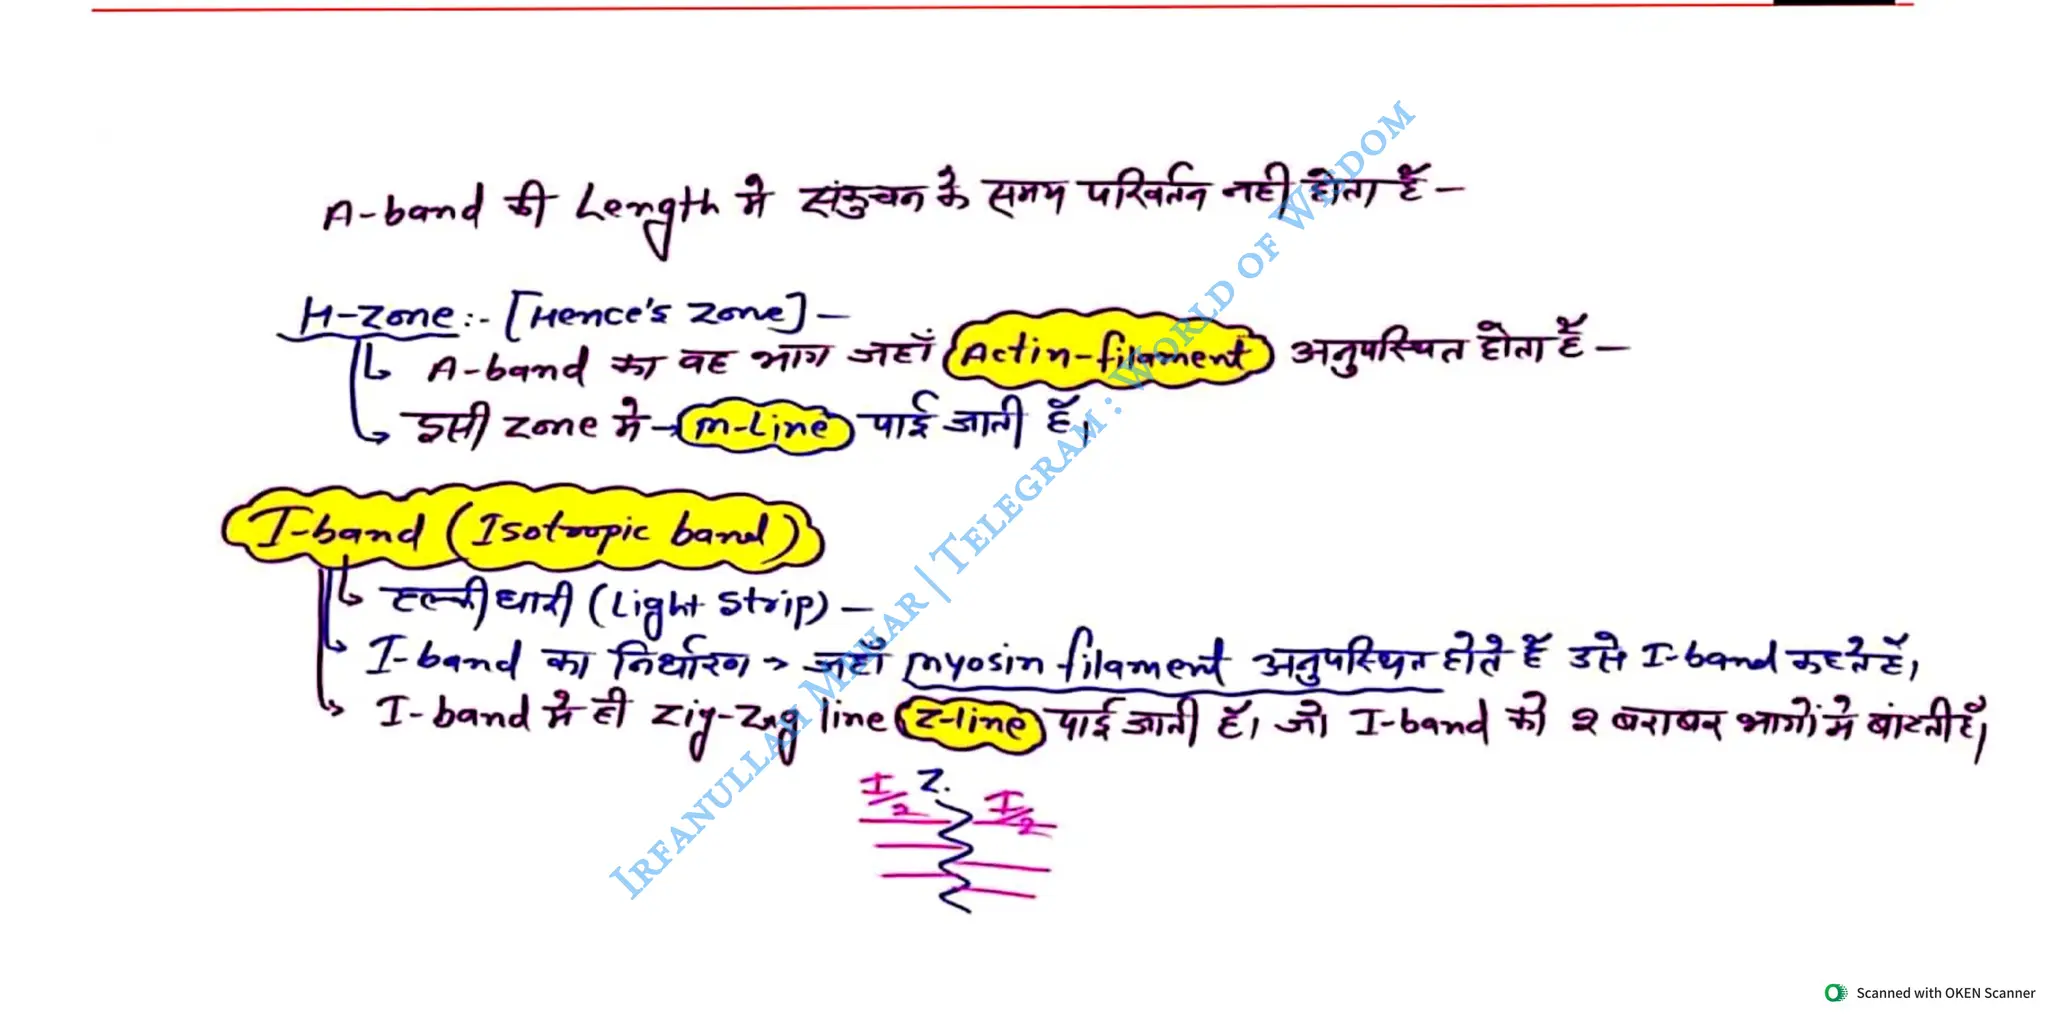 A-band की Length मे संकुचन के समय परिवर्तन नही होता है -
H-Zone:- [Hence's Zone] -
A-band का वह भाग जहाँ Actin-filament अनुपस्थित होता है -
इसी Zone मे → m-Line पाई जाती है।
I-band (Isotropic band)
हल्की धारी (Light Strip) -
I-band का निर्धारण → जहाँ myosin filament अनुपस्थित होते है उसे I-band कहते है।
I-band मे ही Zig-Zag line Z-line पाई जाती है। जो I-band को २ बराबर भागों मे बांटती है।
I/2 Z. I/2
IRFANULLAH MEHAR | TELEGRAM : WORLD OF WISDOM
Scanned with OKEN Scanner